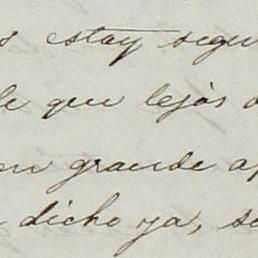 s estay segu
le que lejos d
en grande ap
dicho ya, se